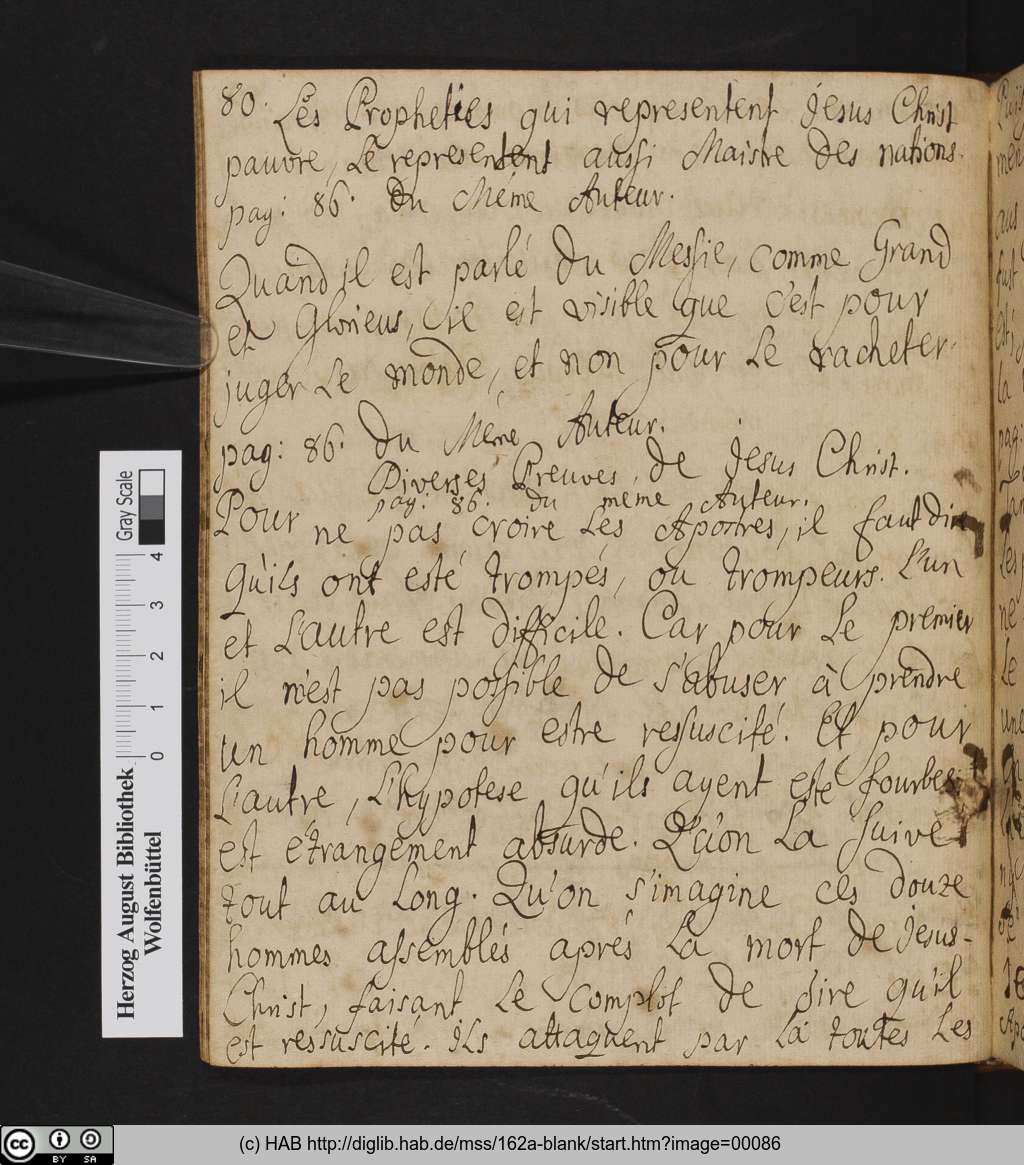 80. Les Propheties qui representent Jesus Christ
pauvre, Le representent aussi Maistre des nations.
pag: 86. du Méme Auteur.
Quand il est parlé du Messie, comme Grand
et Glorieus, il est visible que c'est pour
juger Le monde, et non pour Le racheter.
pag: 86. du Méme Auteur.
Diverses Preuves de Jesus Christ.
pag: 86. du meme Auteur.
Pour ne pas croire Les Apotres, il faut dire
qu'ils ont esté trompés, ou trompeurs. L'un
et L'autre est difficile. Car pour Le premier
il n'est pas possible de s'abuser à prendre
un homme pour estre ressuscité. Et pour
L'autre, L'hypotese qu'ils ayent esté fourbes
est étrangement absurde. Qu'on La suive
tout au Long. Qu'on s'imagine ces douze
hommes assemblés aprés La mort de Jesus-
Christ, faisant Le complot de dire qu'il
est ressuscité. ILs attaquent par La toutes Les
Herzog August Bibliothek
Wolfenbüttel
Gray Scale
0 1 2 3 4
cc BY SA
(c) HAB http://diglib.hab.de/mss/162a-blank/start.htm?image=00086